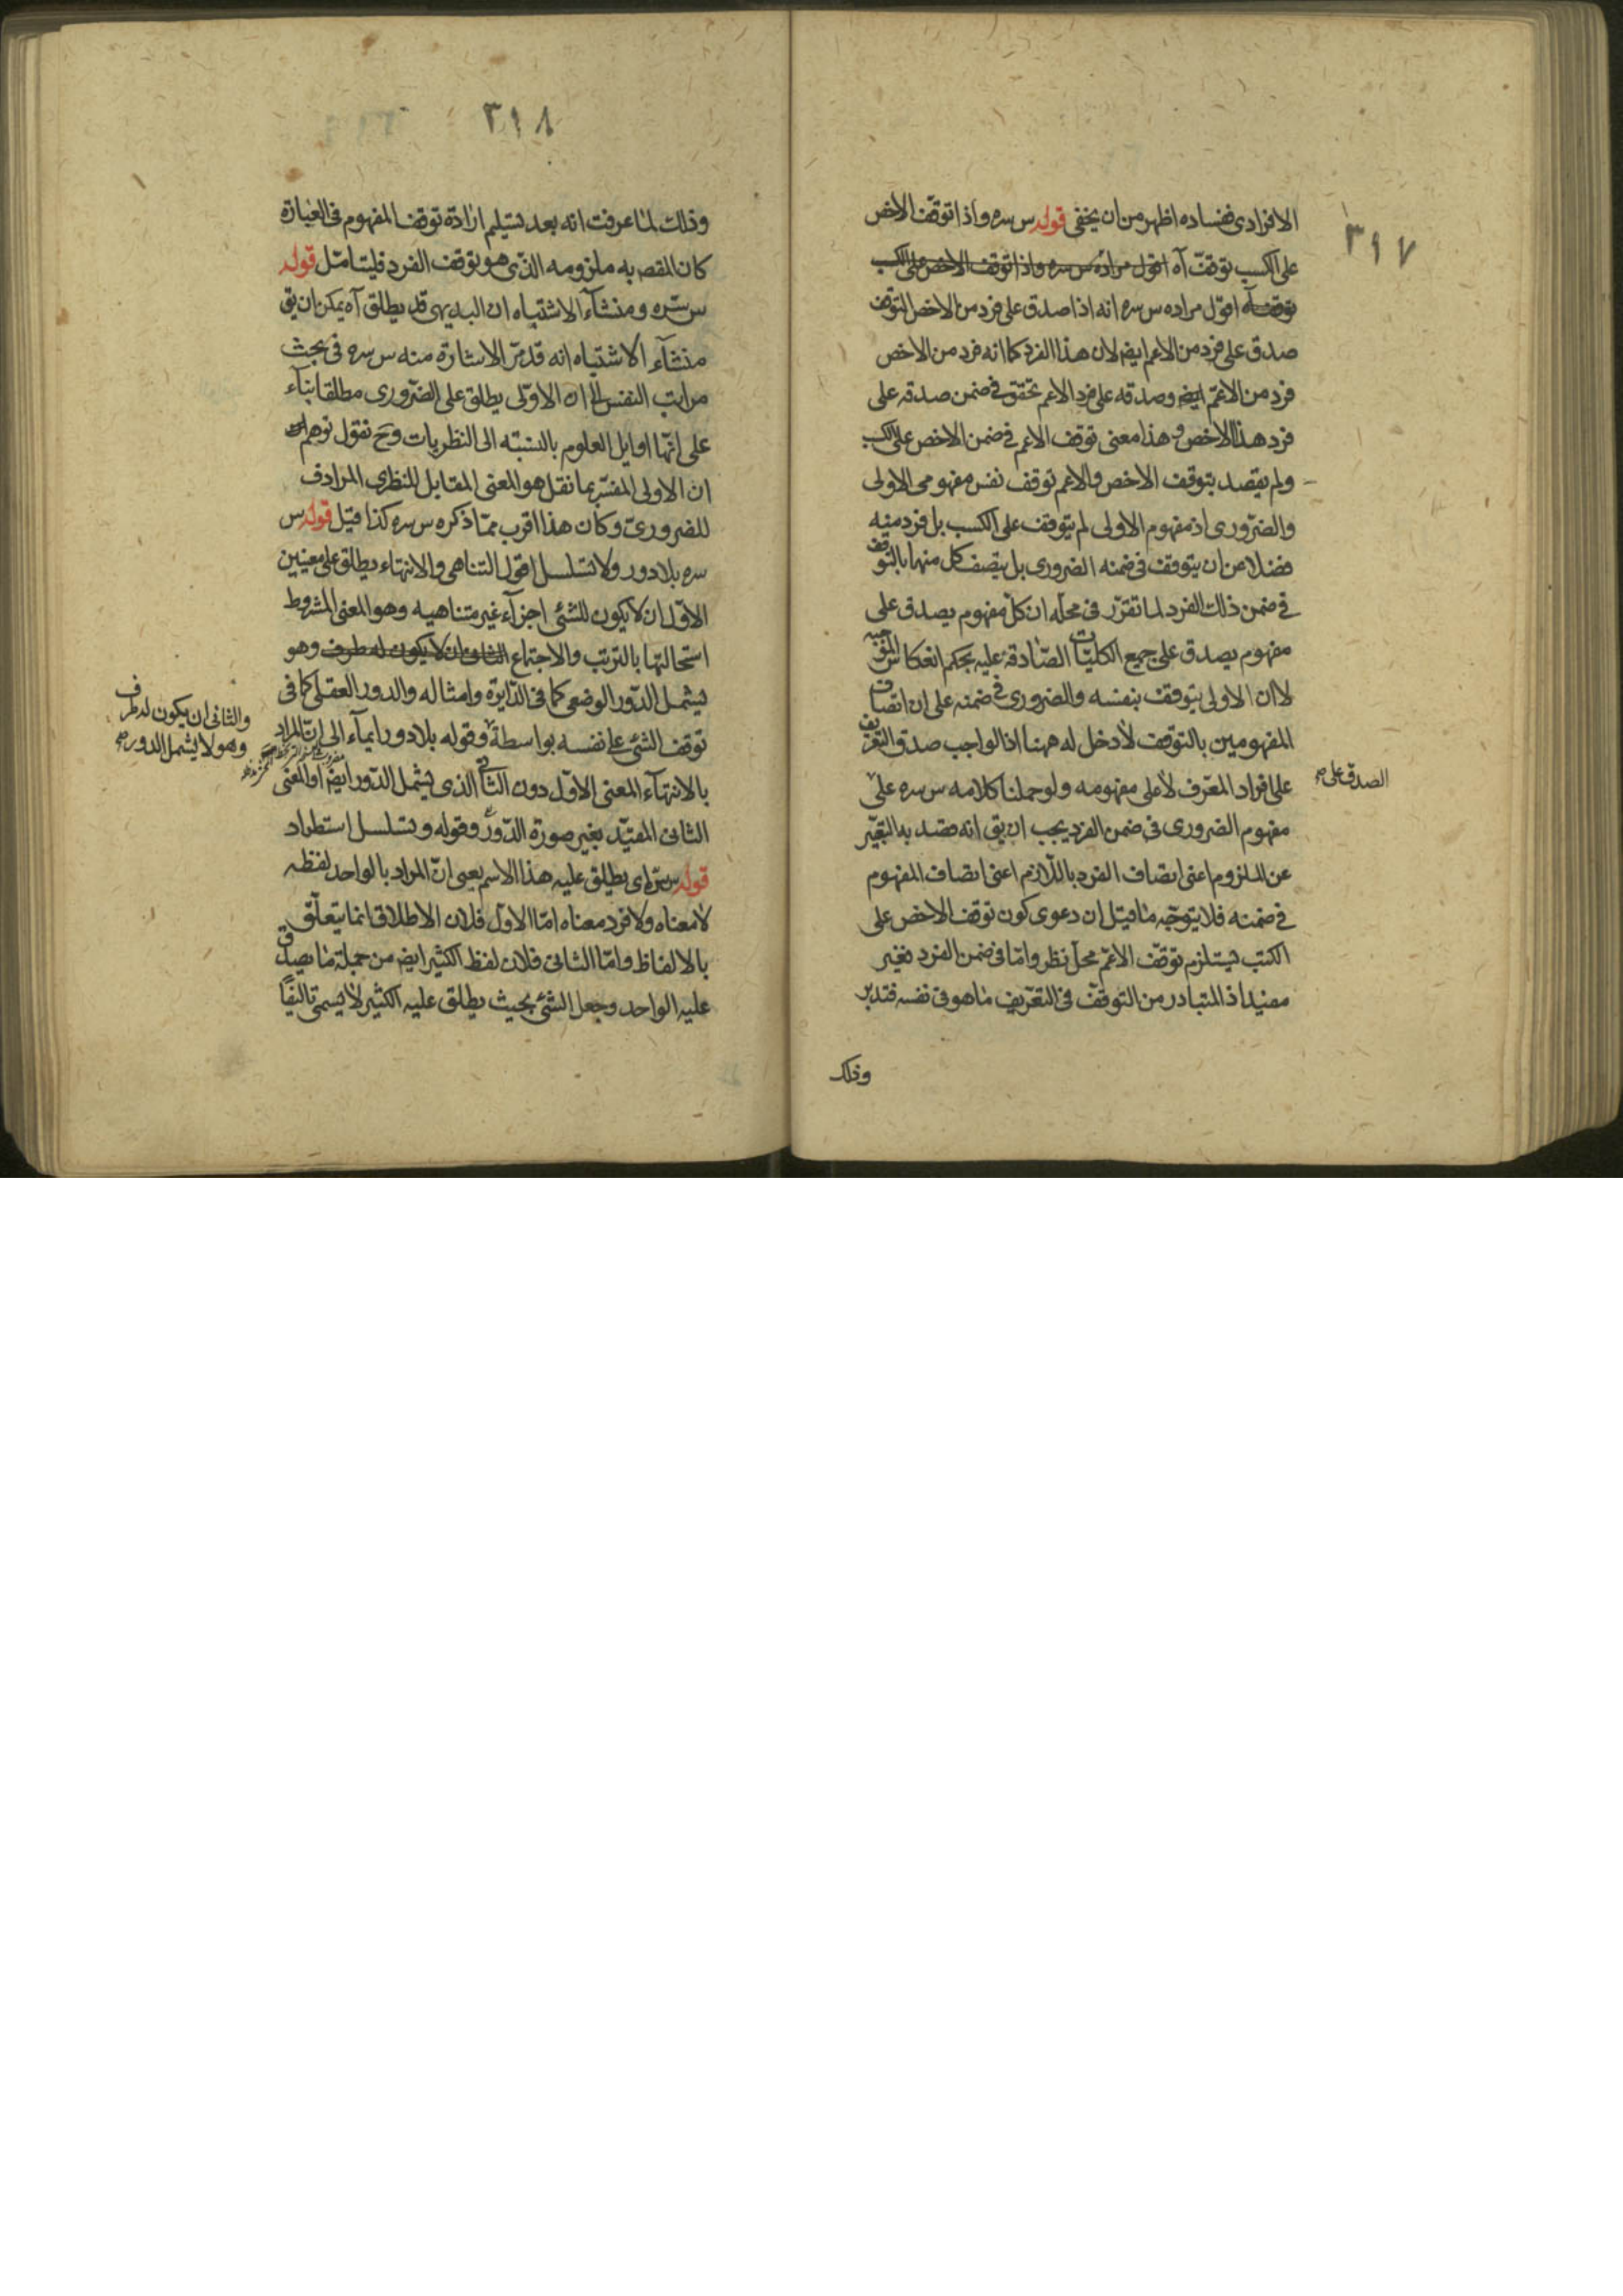 ٣١٧
الافرادى ففساده اظهر من ان يخفى قوله س سره واذا توقف الاخص
على الكسب توقف آه اقول مراده س سره واذا توقف الاخص على الكسب
توقف آه اقول مراده س سره انه اذا صدق على فرد من الاخص التوقف
صدق على فرد من الاعم ايضا لان هذا الفرد كما انه فرد من الاخص
فرد من الاعم ايضا وصدقه على فرد الاعم تحقق فى ضمن صدقه على
فرد هذا الاخص وهذا معنى توقف الاعم فى ضمن الاخص على الكسب
ولم يقصد بتوقف الاخص والاعم توقف نفس مفهومى الاولى
والضرورى اذ مفهوم الاولى لم يتوقف على الكسب بل فرد منه
فضلا عن ان يتوقف فى ضمنه الضرورى بل يتصف كل منهما بالتوقف
فى ضمن ذلك الفرد لما تقرر فى محله ان كل مفهوم يصدق على
مفهوم يصدق على جميع الكليات الصادقة عليه بحكم انعكاس الموجبه
لا ان الاولى يتوقف بنفسه والضرورى فى ضمنه على ان اتصاف
المفهومين بالتوقف لا دخل له ههنا اذ الواجب صدق التعريف
على افراد المعرف لا على مفهومه ولو حملنا كلامه س سره على
الصدق على
مفهوم الضرورى فى ضمن الفرد يجب ان يق انه قصد به التعبير
عن الملزوم اعنى اتصاف الفرد باللازم اعنى اتصاف المفهوم
فى ضمنه فلا يتوجه ما قيل ان دعوى كون توقف الاخص على
الكسب يستلزم توقف الاعم محل نظر واما فى ضمن الفرد فغير
مفيد اذ المتبادر من التوقف فى التعريف ما هو فى نفسه فتدبر
وذلك
٣١٨
وذلك لما عرفت انه بعد تسليم ارادة توقف المفهوم فى العبارة
كان المقص به ملزومه الذى هو توقف الفرد فليتامل قوله
س سره ومنشاء الاشتباه ان البديهى قد يطلق آه يمكن ان يق
منشاء الاشتباه انه قد مر الاشارة منه س سره فى بحث
مراتب النفس الى ان الاولى يطلق على الضرورى مطلقا بناء
على انها اوايل العلوم بالنسبة الى النظريات وح نقول توهم
ان الاولى المفسر بما نقل هو المعنى المقابل للنظرى المرادف
للضرورى وكان هذا اقرب مما ذكره س سره كذا قيل قوله س
سره بلا دور ولا تسلسل اقول التناهى والانتهاء يطلق على معنيين
الاول ان لا يكون للشئ اجزاء غير متناهيه وهو المعنى المشروط
استحالتها بالترتب والاجتماع الثانى ان لا يكون له طرف وهو
يشمل الدور الوضعى كما فى الدايرة وامثاله والدور العقلى كما فى
والثانى ان يكون له طرف
وهو لا يشمل الدور
توقف الشئ على نفسه بواسطة وقوله بلا دور ايماء الى ان المراد
بالانتهاء المعنى الاول دون الثانى الذى يشمل الدور ايضا او المعنى
الثانى المقيد بغير صورة الدور وقوله وتسلسل استطراد
قوله س سره اى يطلق عليه هذا الاسم يعنى ان المراد بالواحد لفظه
لا معناه ولا فرد معناه اما الاول فلان الاطلاق انما يتعلق
بالالفاظ واما الثانى فلان لفظ الكثير ايضا من جملة ما يصدق
عليه الواحد وجعل الشئ بحيث يطلق عليه الكثير لا يسمى تاليفا